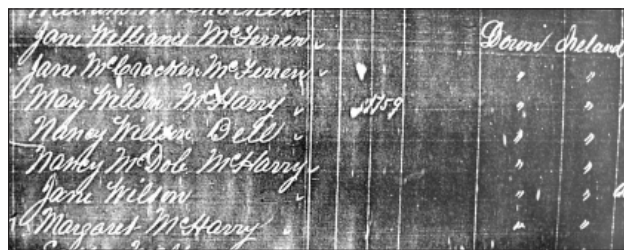 Jane Williams McFerren " Down Ireland
Jane McCracken McFerren " " "
Mary Willson McHarry " 1759 " "
Nancy Willson Dell " " "
Nancy McDob. McHarry " " "
Jane Wilson " " "
Margaret McHarry " " "